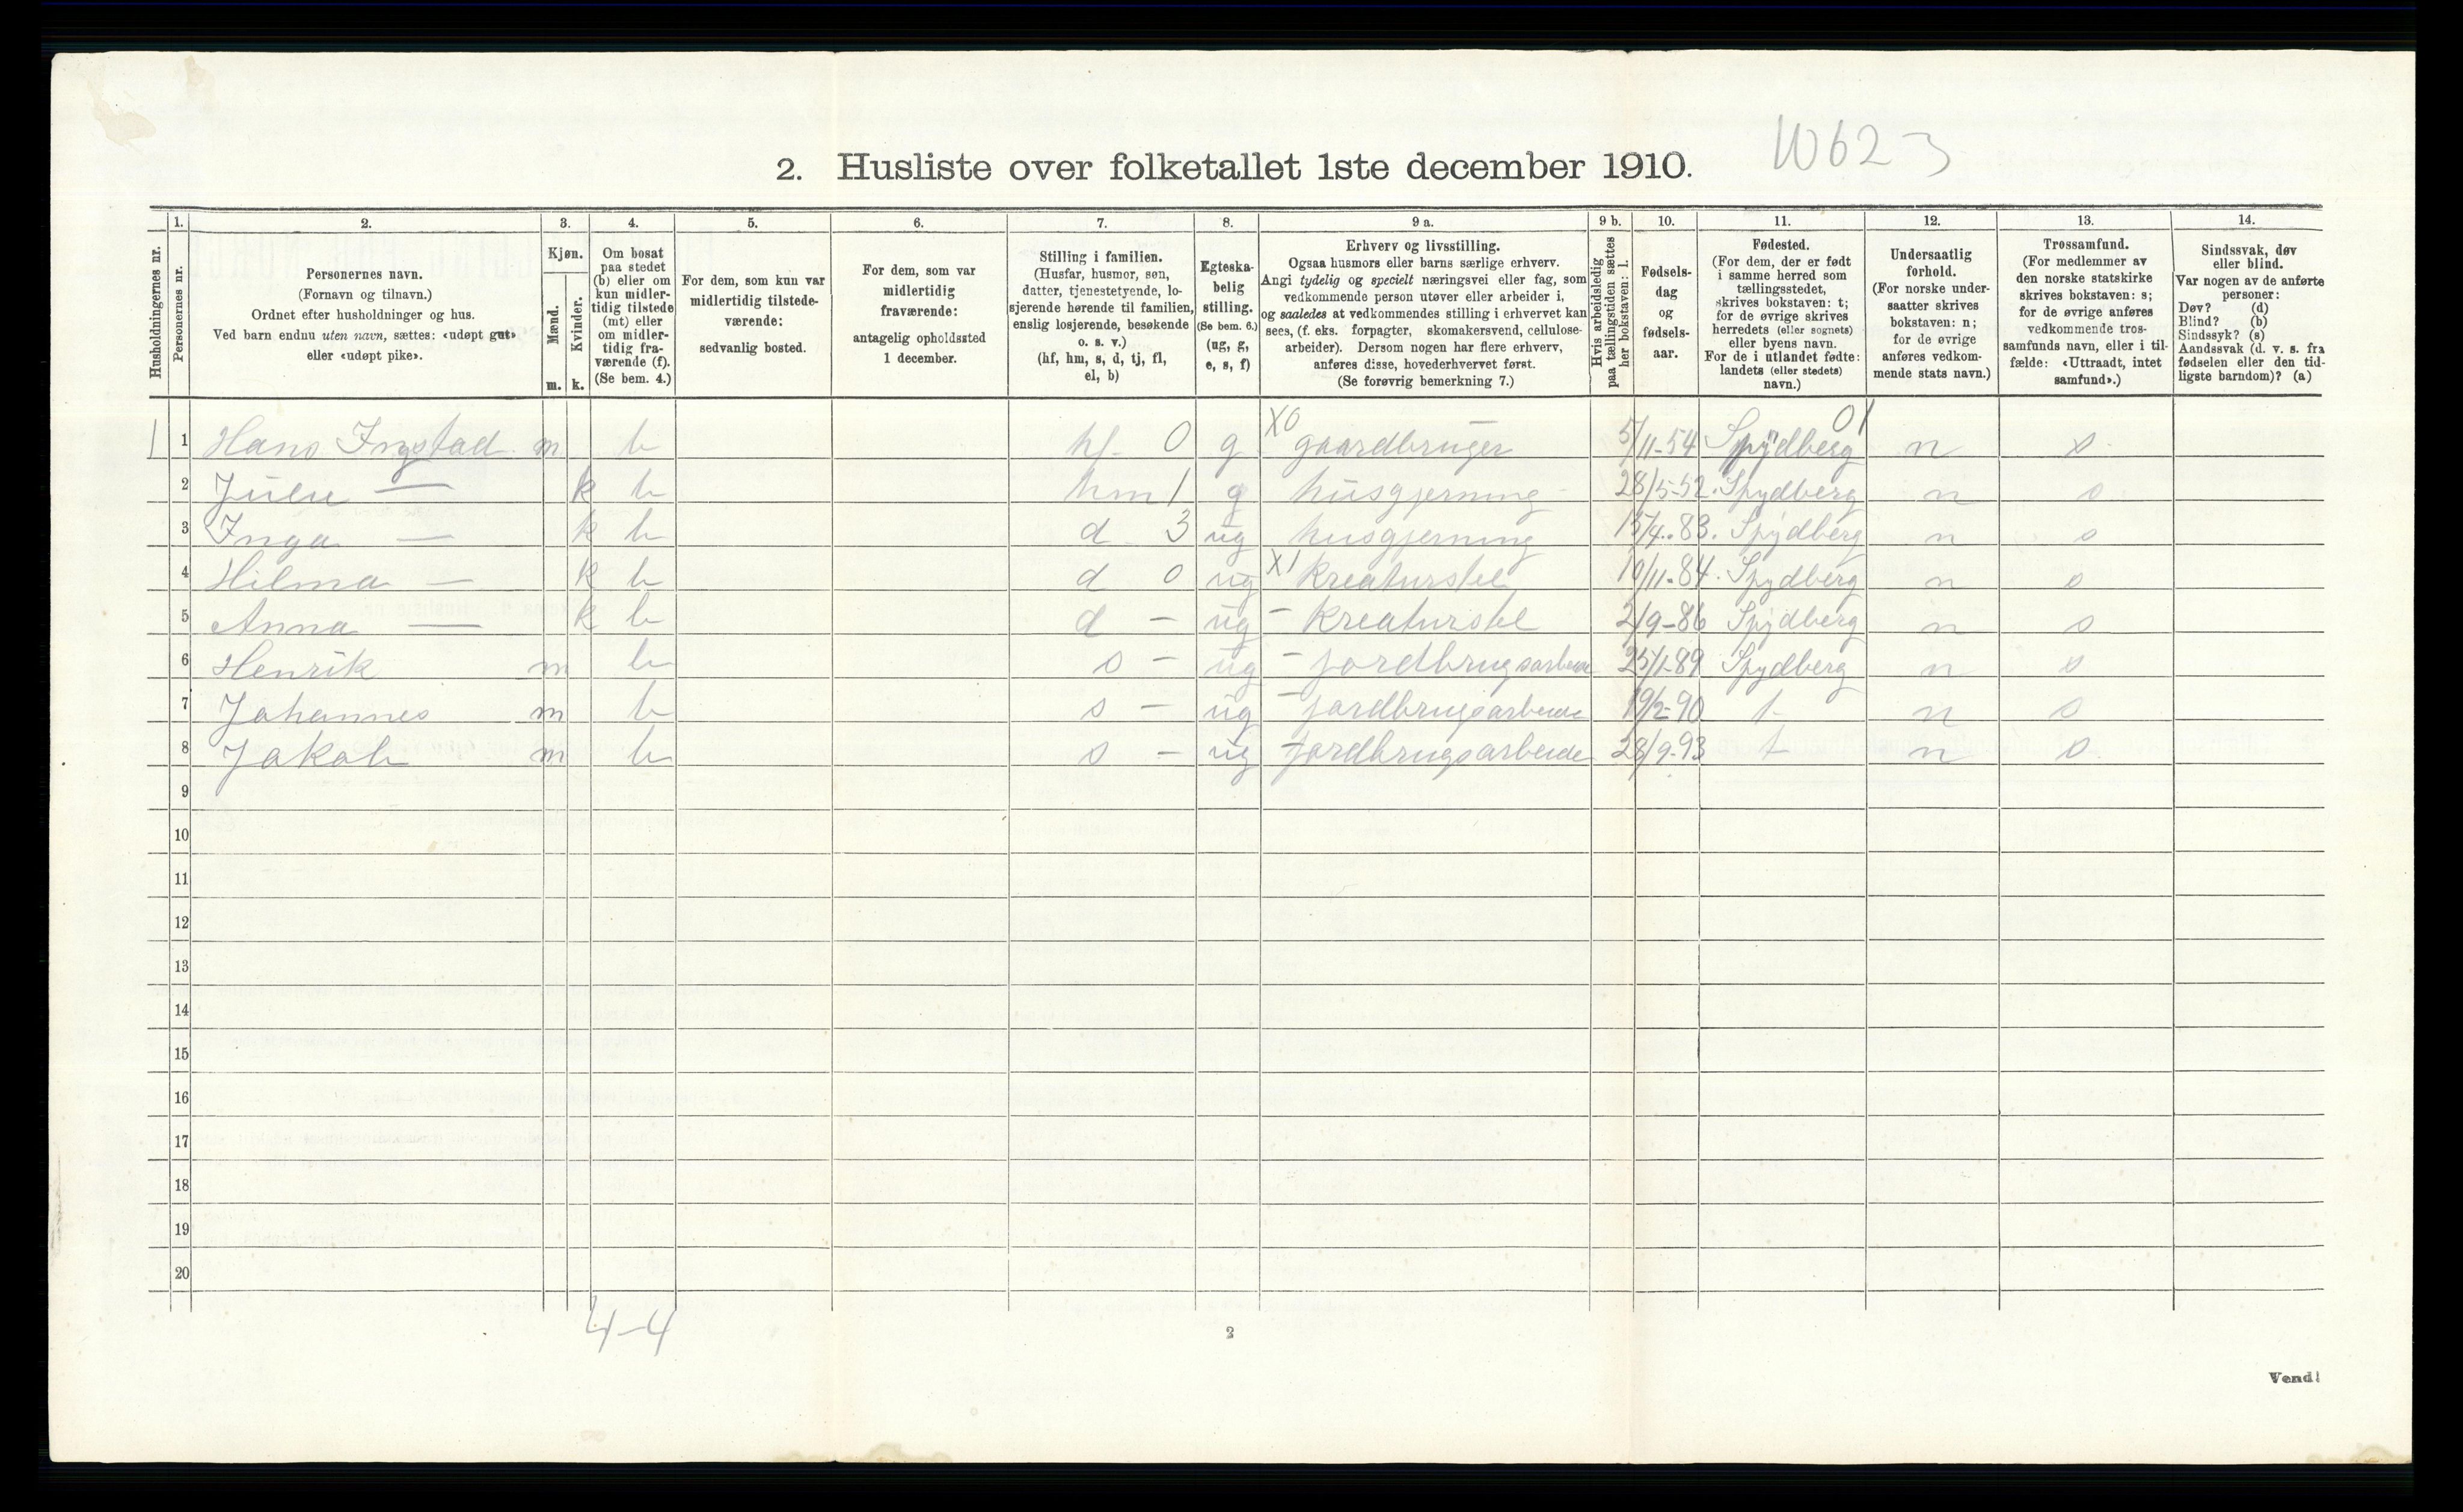 10623
2. Husliste over folketallet 1ste december 1910.
Husholdningernes nr.
1. Personernes nr.
2. Personernes navn. (Fornavn og tilnavn.) Ordnet efter husholdninger og hus. Ved barn endnu uten navn, sættes: «udøpt gut» eller «udøpt pike».
3. Kjøn. Mænd. m. Kvinder. k.
4. Om bosat paa stedet (b) eller om kun midlertidig tilstede (mt) eller om midlertidig fraværende (f). (Se bem. 4.)
5. For dem, som kun var midlertidig tilstedeværende: sedvanlig bosted.
6. For dem, som var midlertidig fraværende: antagelig opholdssted 1 december.
7. Stilling i familien. (Husfar, husmor, søn, datter, tjenestetyende, losjerende hørende til familien, enslig losjerende, besøkende o. s. v.) (hf, hm, s, d, tj, fl, el, b)
8. Egteskabelig stilling. (Se bem. 6.) (ug, g, e, s, f)
9 a. Erhverv og livsstilling. Ogsaa husmors eller barns særlige erhverv. Angi tydelig og specielt næringsvei eller fag, som vedkommende person utøver eller arbeider i, og saaledes at vedkommendes stilling i erhvervet kan sees, (f. eks. forpagter, skomakersvend, cellulosearbeider). Dersom nogen har flere erhverv, anføres disse, hovederhvervet først. (Se forøvrig bemerkning 7.)
9 b. Hvis arbeidsledig paa tællingstiden sættes her bokstaven: l.
10. Fødselsdag og fødselsaar.
11. Fødested. (For dem, der er født i samme herred som tællingsstedet, skrives bokstaven: t; for de øvrige skrives herredets (eller sognets) eller byens navn. For de i utlandet fødte: landets (eller stedets) navn.)
12. Undersaatlig forhold. (For norske undersaatter skrives bokstaven: n; for de øvrige anføres vedkommende stats navn.)
13. Trossamfund. (For medlemmer av den norske statskirke skrives bokstaven: s; for de øvrige anføres vedkommende trossamfunds navn, eller i tilfælde: «Uttraadt, intet samfund».)
14. Sindssvak, døv eller blind. Var nogen av de anførte personer: Døv? (d) Blind? (b) Sindssyk? (s) Aandssvak (d. v. s. fra fødselen eller den tidligste barndom)? (a)
1 1 Hans Ingstad m b hf 0 g X0 gaardbruger 5/11-54 Spydberg 01 n s
2 Julie — k b hm 1 g husgjerning 28/5-52 Spydberg n s
3 Inga — k b d 3 ug husgjerning 15/4-83 Spydberg n s
4 Hilma — k b d 0 ug X1 kreaturstel 10/11-84 Spydberg n s
5 Anna — k b d - ug - kreaturstel 2/9-86 Spydberg n s
6 Henrik m b s - ug - jordbrugsarbeide 25/1-89 Spydberg n s
7 Johannes m b s - ug - jordbrugsarbeide 19/2-90 t n s
8 Jakob m b s - ug - jordbrugsarbeide 28/9-93 t n s
9
10
11
12
13
14
15
16
17
18
19
20
4-4
2
Vend!